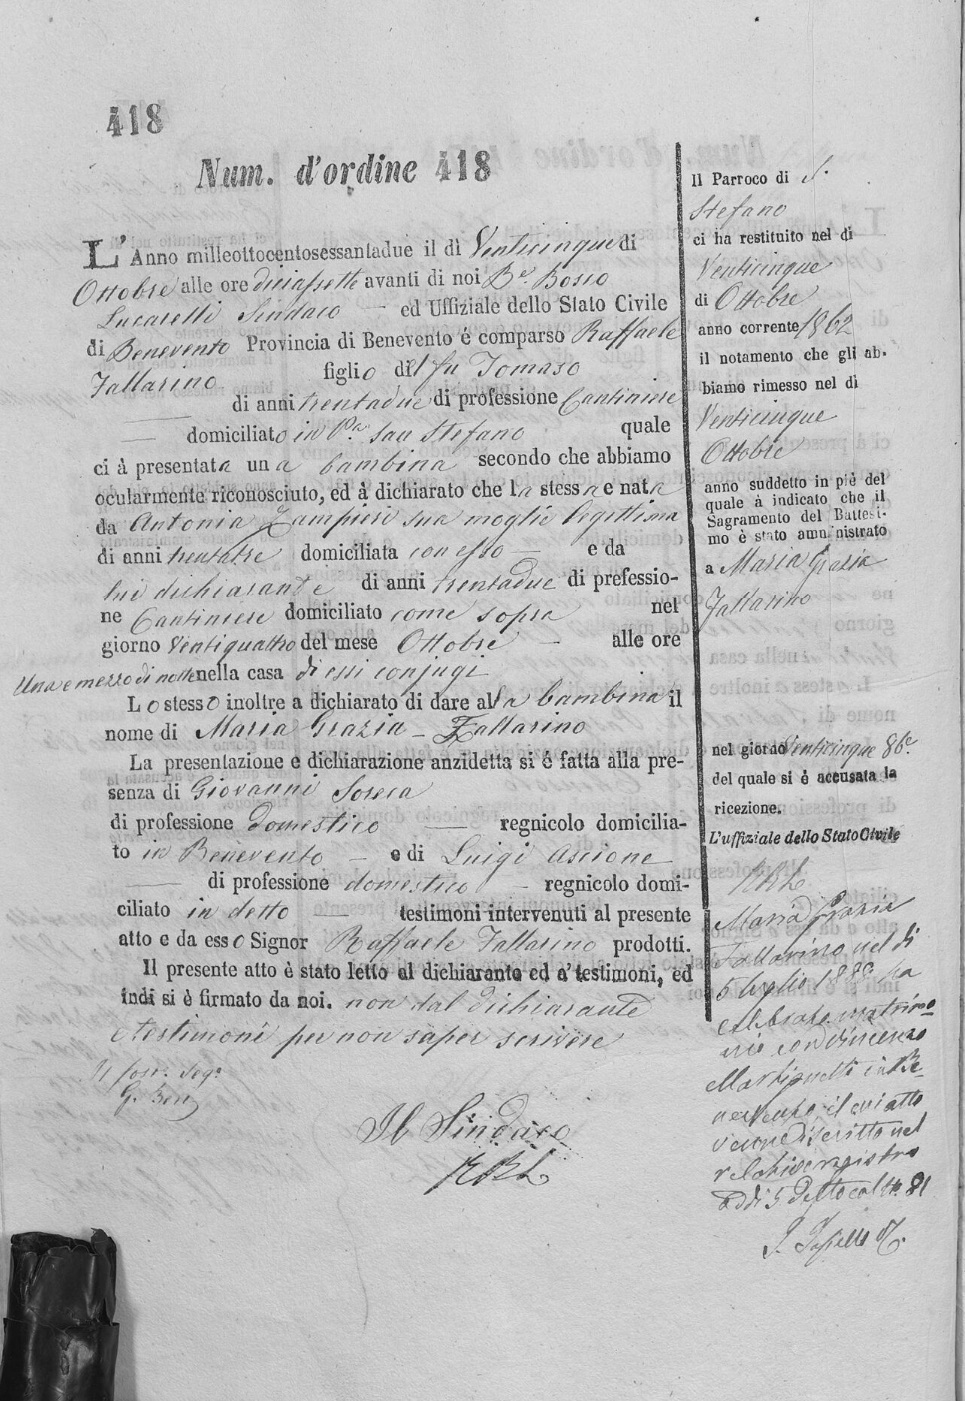 418
Num. d'ordine 418
L'Anno milleottocentosessantadue il dì Venticinque di
Ottobre alle ore diciassette avanti di noi Bosco
Lucarelli Sindaco — ed Uffiziale dello Stato Civile
di Benevento Provincia di Benevento é comparso Raffaele
Fallarino figlio del fu Tomaso
di anni trentadue di professione Cantiniere
— domiciliato in Pa. San Stefano quale
ci à presentata una bambina secondo che abbiamo
ocularmente riconosciuto, ed à dichiarato che la stessa e nata
da Antonia Zampieri sua moglie legittima
di anni trentatre domiciliata con esso — e da
lui dichiarante di anni trentadue di prefessio-
ne Cantiniere domiciliato come sopra nel
giorno Ventiquattro del mese Ottobre — alle ore
Una e mezzo di notte nella casa di essi conjugi
Lo stesso inoltre a dichiarato di dare alla bambina il
nome di Maria Grazia — Fallarino
La presentazione e dichiarazione anzidetta si é fatta alla pre-
senza di Giovanni Soreca
di professione domestico — regnicolo domicilia-
to in Benevento — e di Luigi Ascione
— di professione domestico — regnicolo domi-
ciliato in detto — testimoni intervenuti al presente
atto e da esso Signor Raffaele Fallarino prodotti.
Il presente atto è stato letto al dichiarante ed a' testimoni, ed
indi si è firmato da noi. non dal dichiarante
e testimoni per non saper scrivere
Il Sindaco
Il Parroco di S.
Stefano
ci ha restituito nel di
Venticinque
di Ottobre
anno corrente 1862
il notamento che gli ab-
biamo rimesso nel di
Venticinque
Ottobre
anno suddetto in piè del
quale à indicato che il
Sagramento del Battesi-
mo è stato amministrato
a Maria Grazia
Fallarino
nel giorno Venticinque 86e
del quale si é accusata la
ricezione.
L'uffiziale dello Stato Civile
Maria Grazia
Fallarino nel di
5 luglio 1880 ha
celebrato matrimo-
nio con Vincenzo
Martignetti in Be-
nevento, il cui atto
venne iscritto nel
relativo registro
addi 5 detto col No. 81